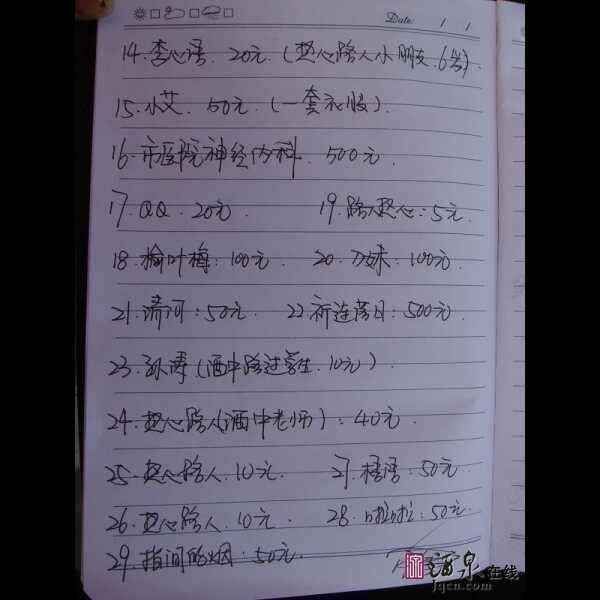 Date: / /
14.李心语. 20元.(热心路人小朋友.6岁).
15.小艾. 50元.(一套衣服).
16.市医院神经内科. 500元.
17.QQ. 20元. 19.路人热心:5元.
18.榆叶梅:100元. 20.刀妹:100元.
21.清河:50元. 22.祁连落日:500元.
23.孙涛(酒中路过学生.10元).
24.热心路人(酒中老师):40元.
25.热心路人.10元. 27.梧语:50元.
26.热心路人.10元. 28.啦啦:50元.
29.指间的烟:50元.
酒泉在线
jqcn.com